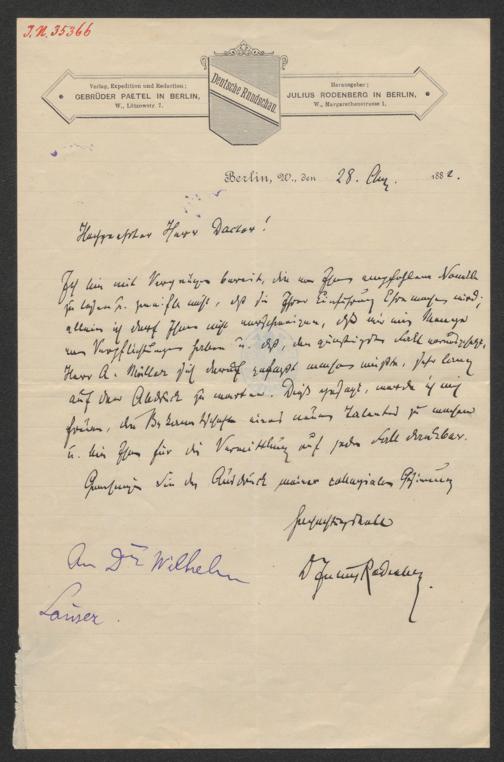 I.N. 35366
Verlag, Expedition und Redaction:
GEBRÜDER PAETEL IN BERLIN,
W., Lützowstr. 7.
Deutsche Rundschau.
Herausgeber:
JULIUS RODENBERG IN BERLIN,
W., Margarethenstrasse 1.
Berlin, W., den 28. Aug. 1882.
Hochgeehrter Herr Doctor!
Ich bin mit Vergnügen bereit, die von Ihnen empfohlene Novelle
zu lesen u. zweifle nicht, daß sie Ihrer Einführung Ehre machen wird;
allein ich darf Ihnen nicht verschweigen, daß wir eine Menge
von Verpflichtungen haben u. daß, den günstigsten Fall vorausgesetzt,
Herr A. Müller sich darauf gefaßt machen müßte, sehr lang
auf den Abdruck zu warten. Dieß gesagt, werde ich mich
freuen, die Bekanntschaft eines neuen Talentes zu machen
u. bin Ihnen für die Vermittlung auf jeden Fall dankbar.
Genehmigen Sie den Ausdruck meiner collegialen Gesinnung
Hochachtungsvoll
Dr Julius Rodenberg.
An Dr Wilhelm
Lauser.